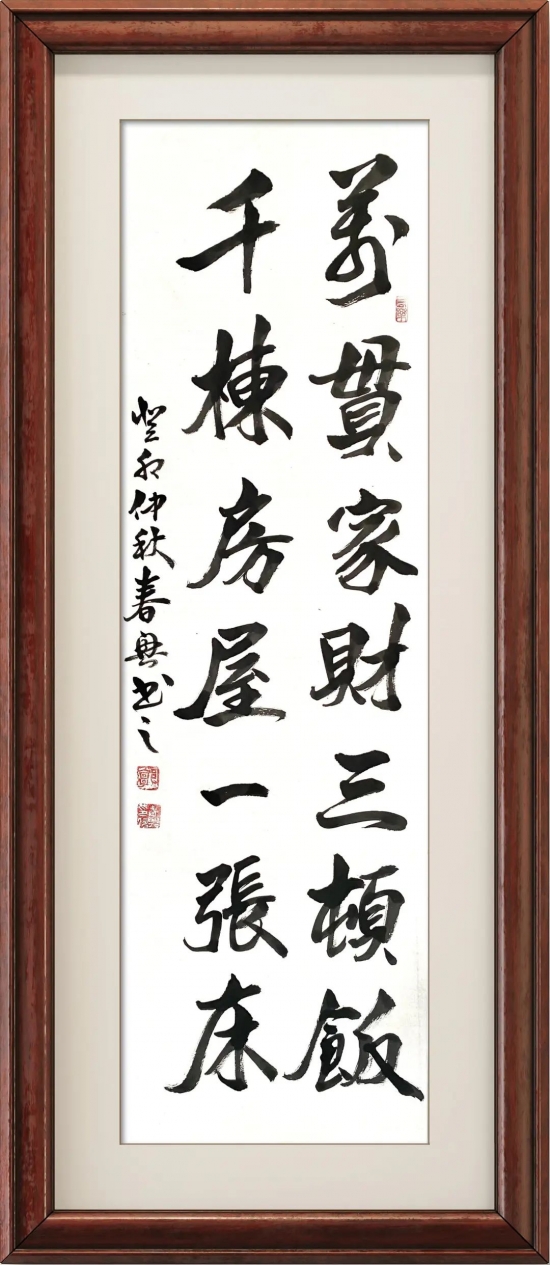 萬貫家財三頓飯
千棟房屋一張床
癸卯仲秋春無書之